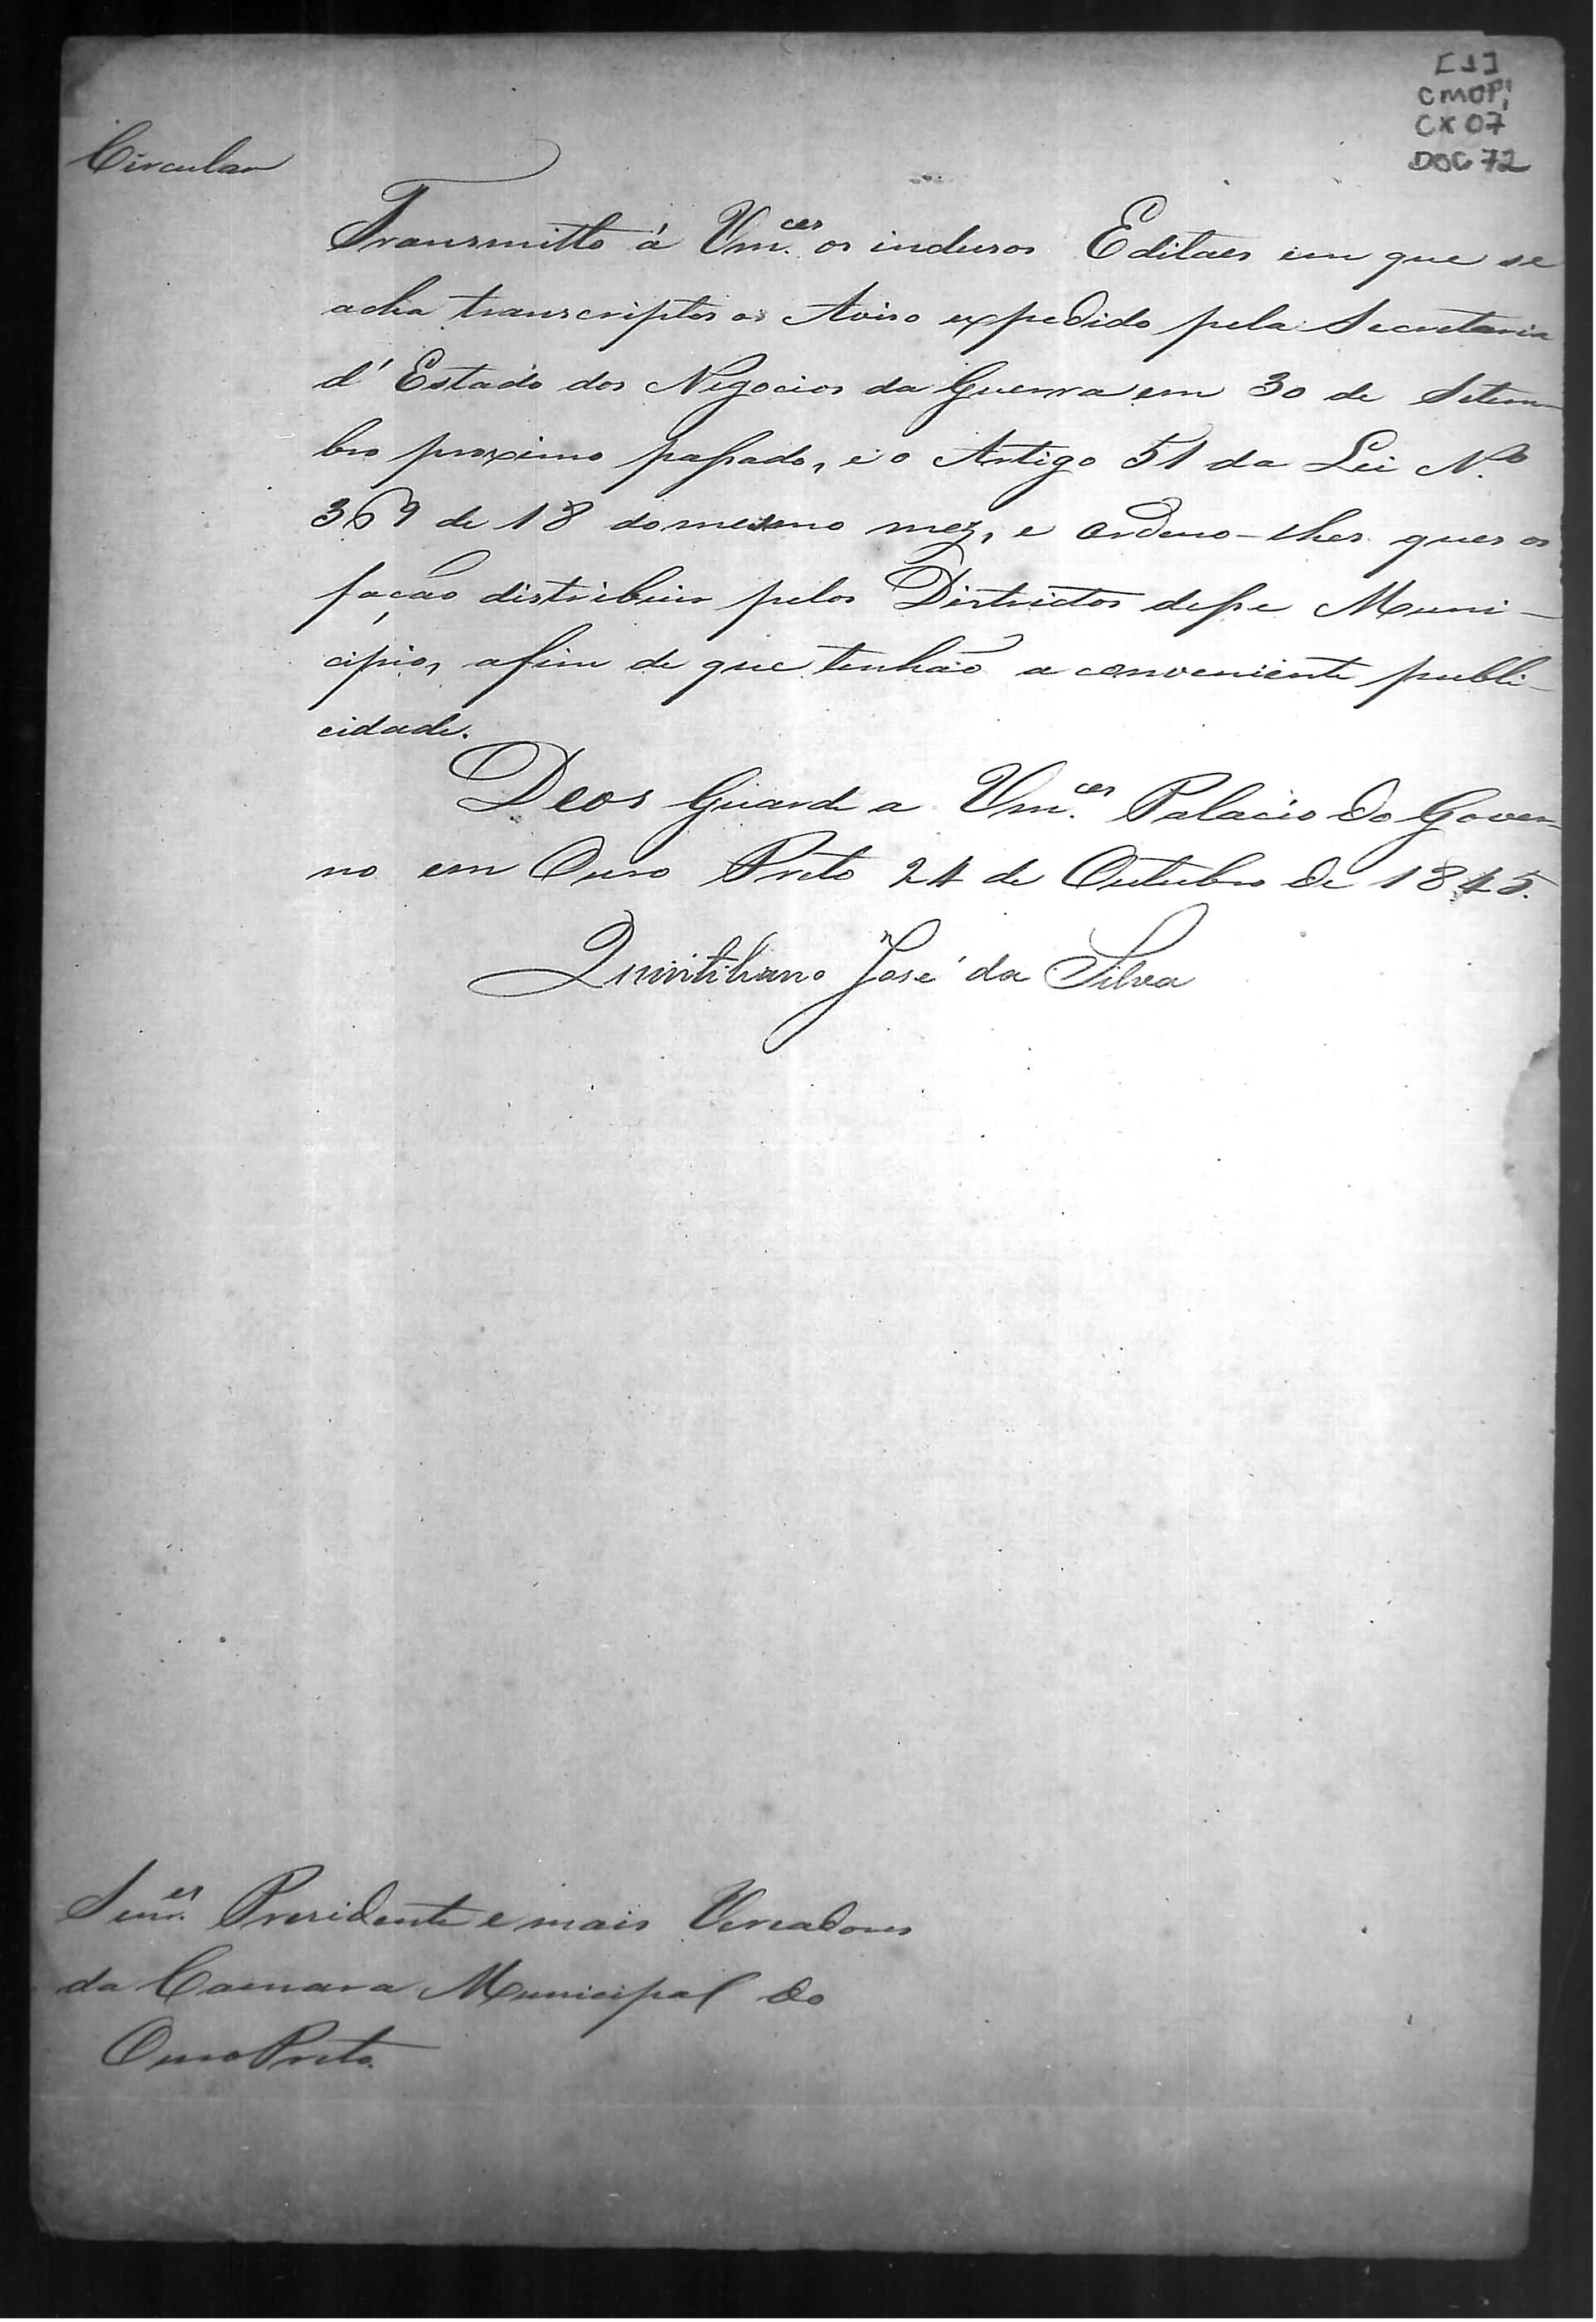 [1]
CMOP,
CX 07
DOC 72
Circular
Transmitto á Vm.ces os inclusos Editaes em que se
acha transcriptos os Aviso expedido pela Secretaria
d'Estado dos Negocios da Guerra em 30 de Setem-
bro proximo passado, e o Artigo 51 da Lei N.º
369 de 18 do mesmo mez, e ordeno-lhes que os
fação distribuir pelos Districtos desse Muni-
cipio, afim de que tenhão a conveniente publi-
cidade.
Deos Guarde a Vm.ces Palacio do Gover-
no em Ouro Preto 24 de Outubro de 1845.
Quintiliano José da Silva
Senr.es Presidente e mais Vereadores
da Camara Municipal do
Ouro Preto.